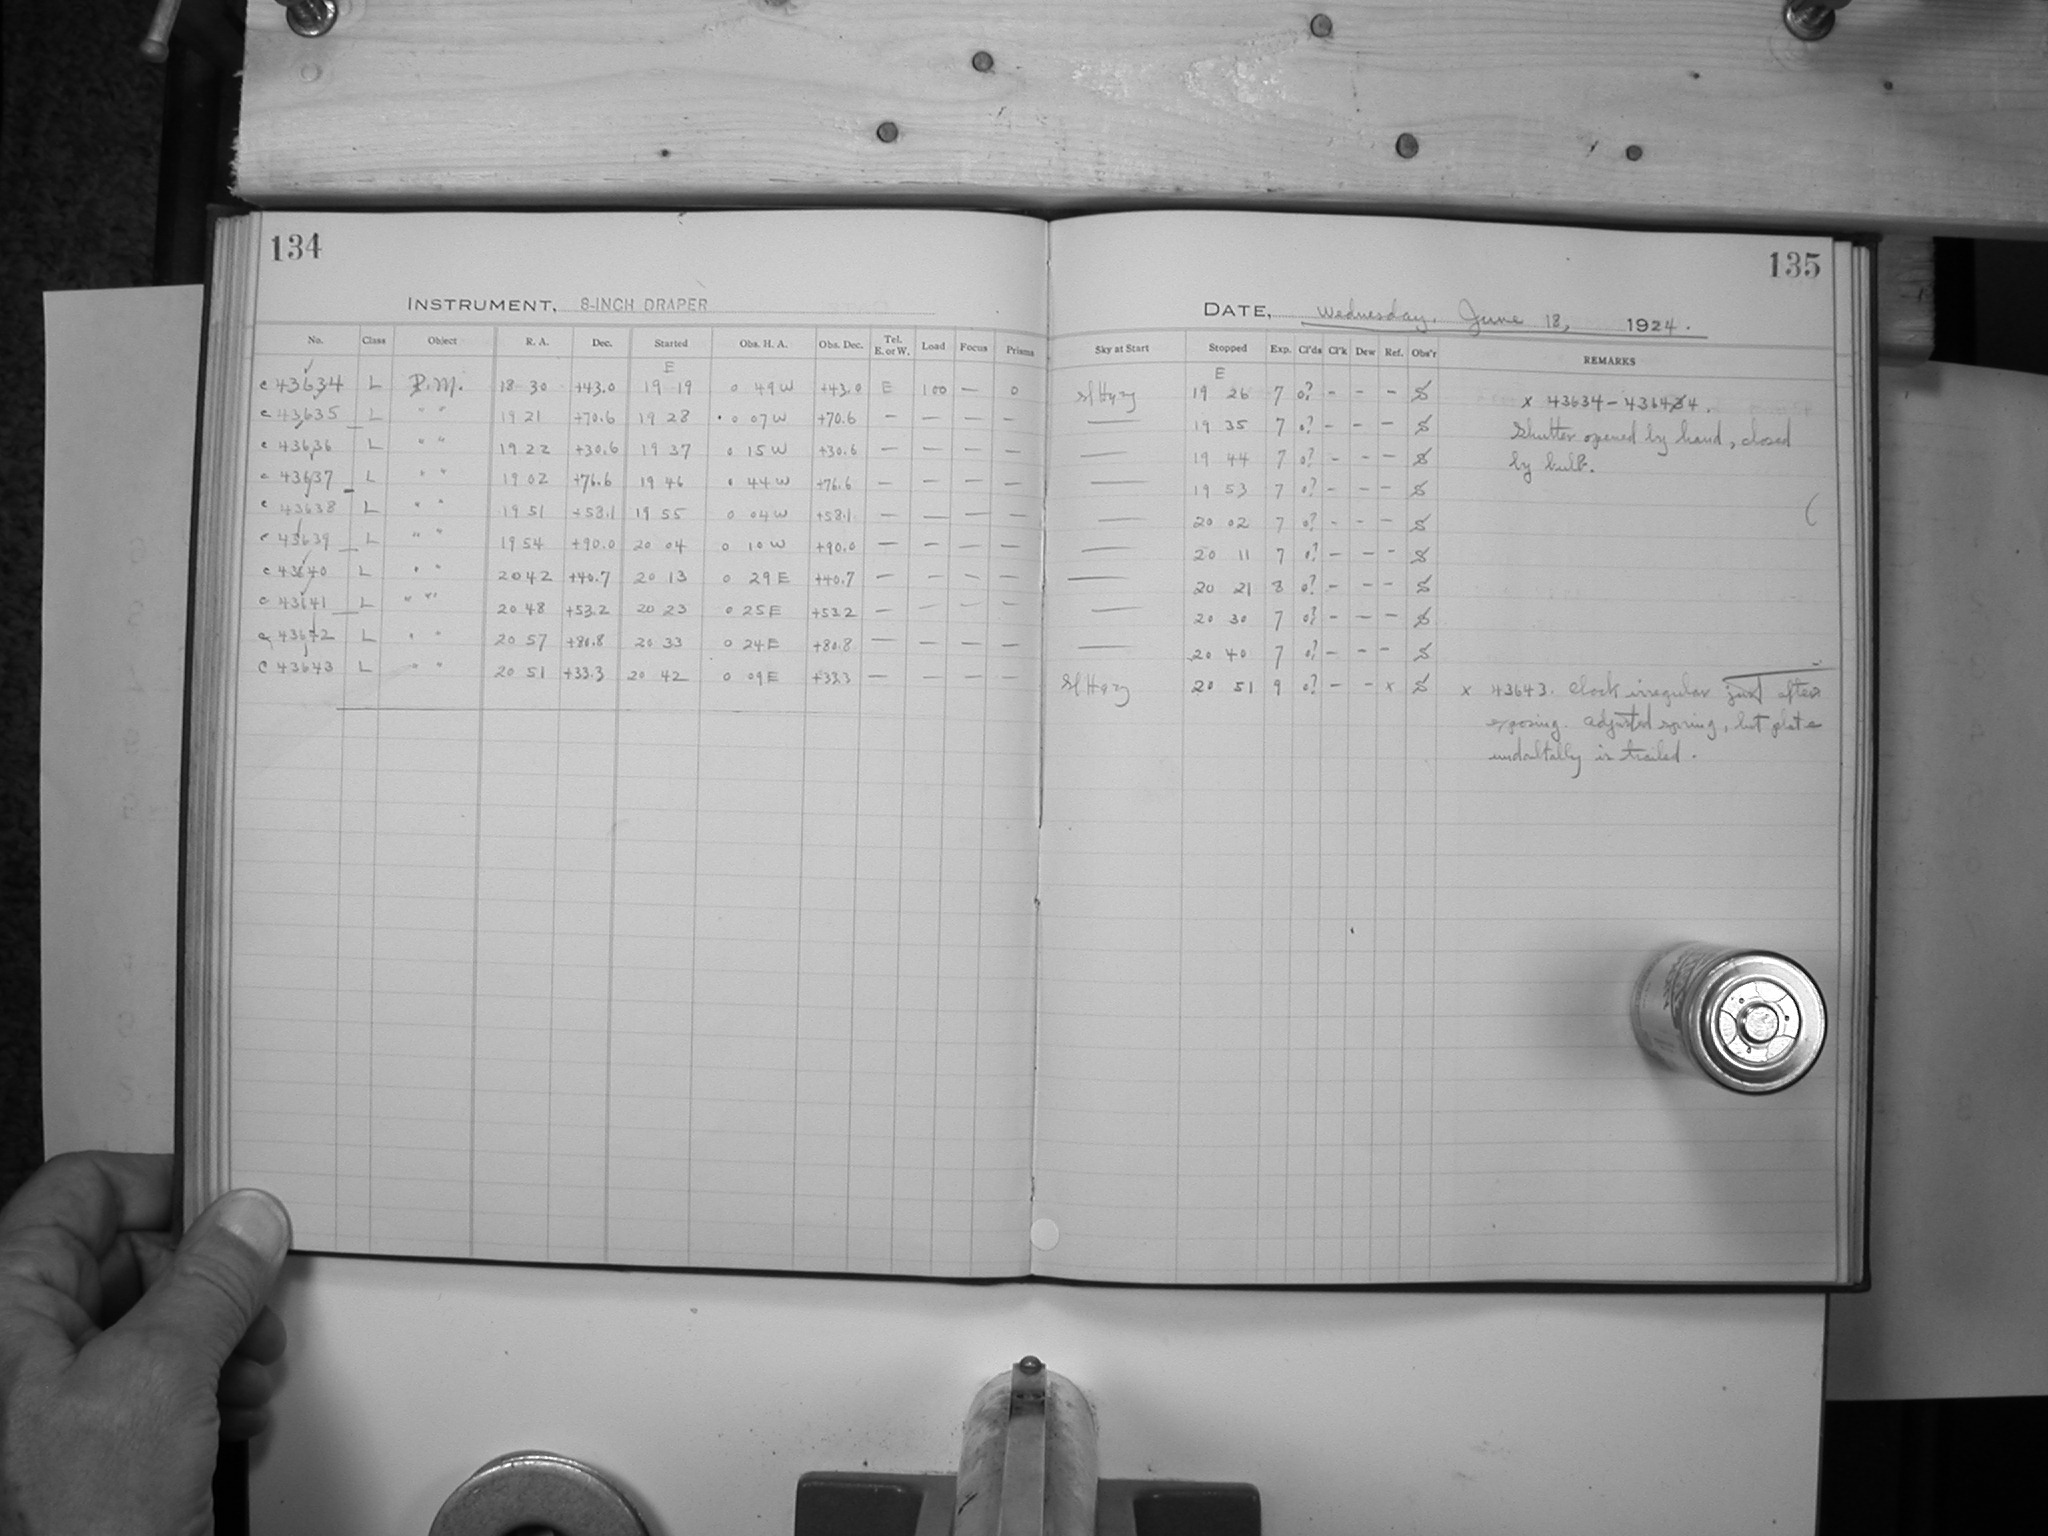 134
INSTRUMENT, 8-INCH DRAPER
No. Class Object R. A. Dec. Started Obs. H. A. Obs. Dec. Tel. E. or W. Load Focus Prisms
E
c 43634 L P.M. 18 30 +43.0 19 19 0 49 W +43.0 E 100 — 0
c 43635 L " " 19 21 +70.6 19 28 0 07 W +70.6 — — — —
c 43636 L " " 19 22 +30.6 19 37 0 15 W +30.6 — — — —
c 43637 L " " 19 02 +76.6 19 46 0 44 W +76.6 — — — —
c 43638 L " " 19 51 +58.1 19 55 0 04 W +58.1 — — — —
c 43639 L " " 19 54 +90.0 20 04 0 10 W +90.0 — — — —
c 43640 L " " 20 42 +40.7 20 13 0 29 E +40.7 — — — —
c 43641 L " " 20 48 +53.2 20 23 0 25 E +53.2 — — — —
c 43642 L " " 20 57 +80.8 20 33 0 24 E +80.8 — — — —
C 43643 L " " 20 51 +33.3 20 42 0 09 E +33.3 — — — —
135
DATE, Wednesday, June 18, 1924.
Sky at Start Stopped Exp. Cl'ds Cl'k Dew Ref. Obs'r REMARKS
E
Sl Hazy 19 26 7 0? - - - S x 43634-43644.
— 19 35 7 0? - - - S Shutter opened by hand, closed
— 19 44 7 0? - - - S by bulb.
— 19 53 7 0? - - - S
— 20 02 7 0? - - - S
— 20 11 7 0? - - - S
— 20 21 8 0? - - - S
— 20 30 7 0? - - - S
— 20 40 7 0? - - - S
Sl Hazy 20 51 9 0? - - x S x 43643. Clock irregular just after
exposing. Adjusted spring, but plate
undoubtally is trailed.